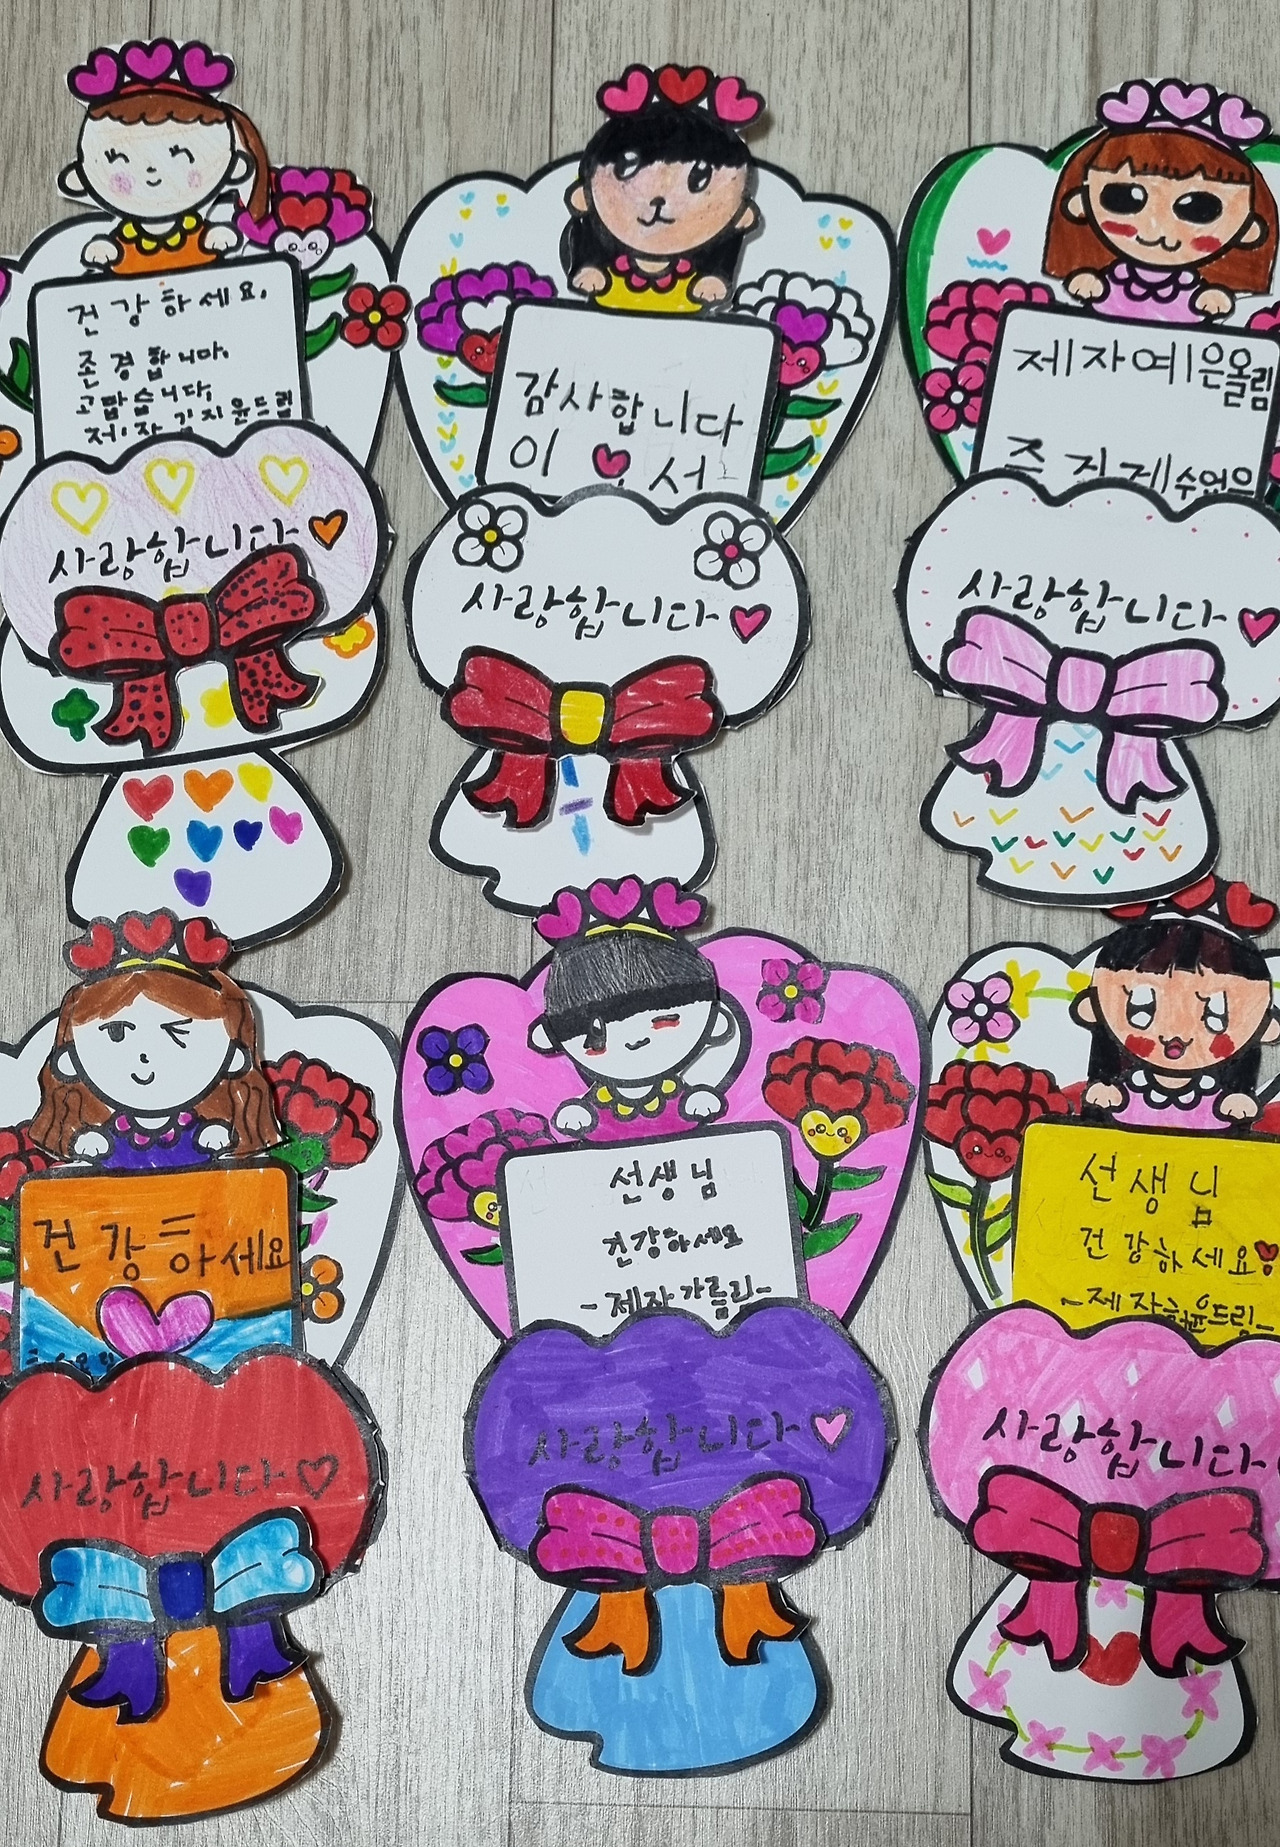 건강하세요.
존경합니다.
고맙습니다.
제자 김지윤드림
사랑합니다
감사합니다
이 서
사랑합니다
제자예은올림
사랑합니다
건강하세요
사랑합니다
선생님
건강하세요
-제자가률리-
사랑합니다
선생님
건강하세요
-제자하윤드림-
사랑합니다